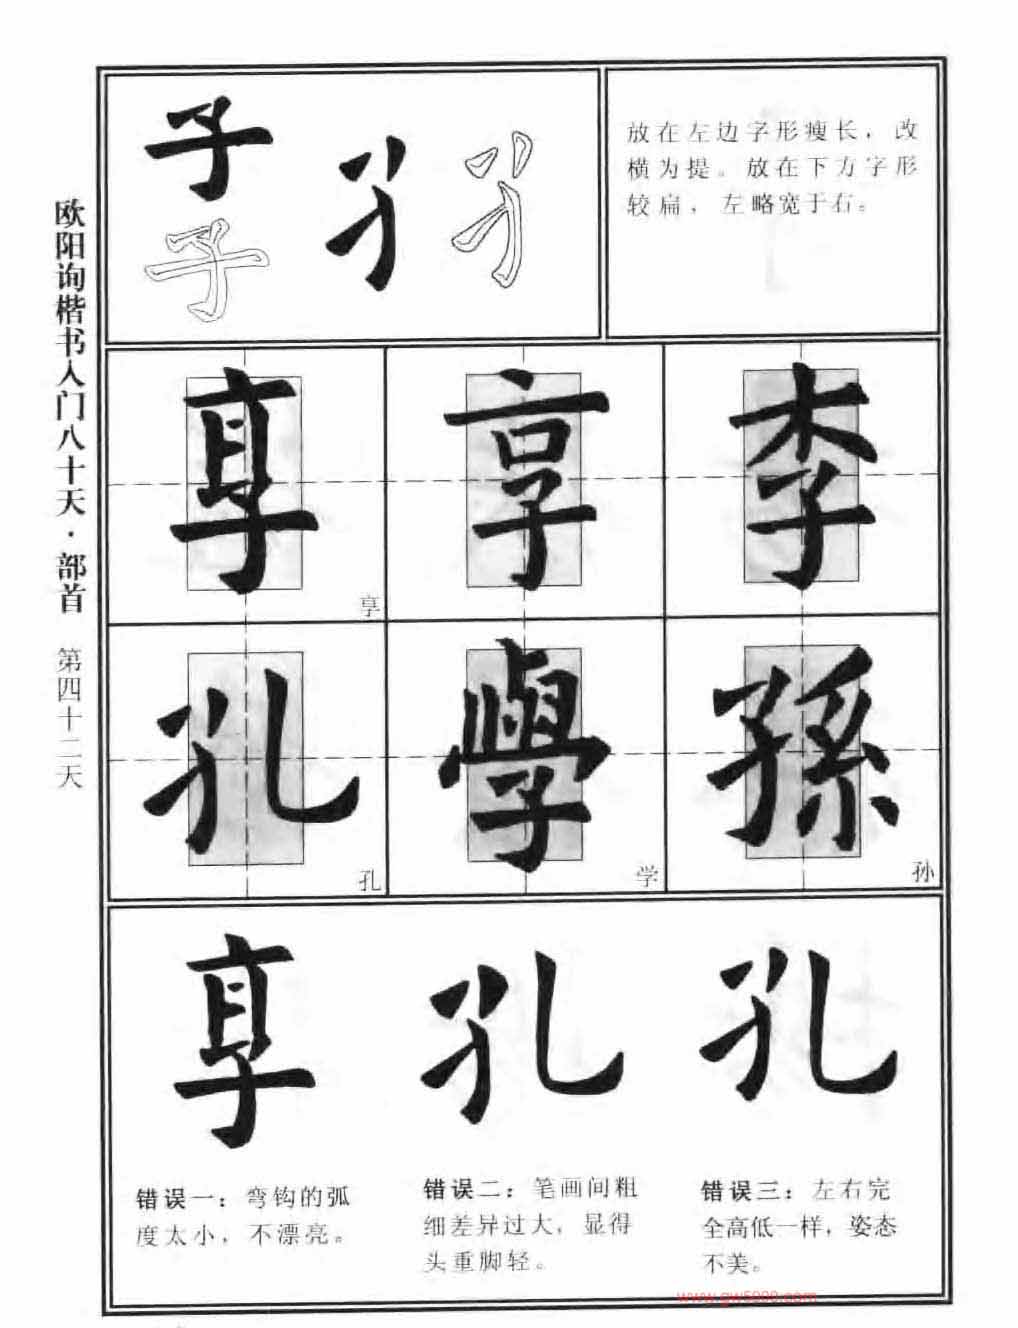 欧阳询楷书入门八十天·部首 第四十二天
子
子
孑 孑
放在左边字形瘦长，改
横为提。放在下方字形
较扁，左略宽于右。
享 享 李
享
孔 學 孫
孔 学 孙
享 孔 孔
错误一：弯钩的弧
度太小，不漂亮。
错误二：笔画间粗
细差异过大，显得
头重脚轻。
错误三：左右完
全高低一样，姿态
不美。
www.gw5000.com